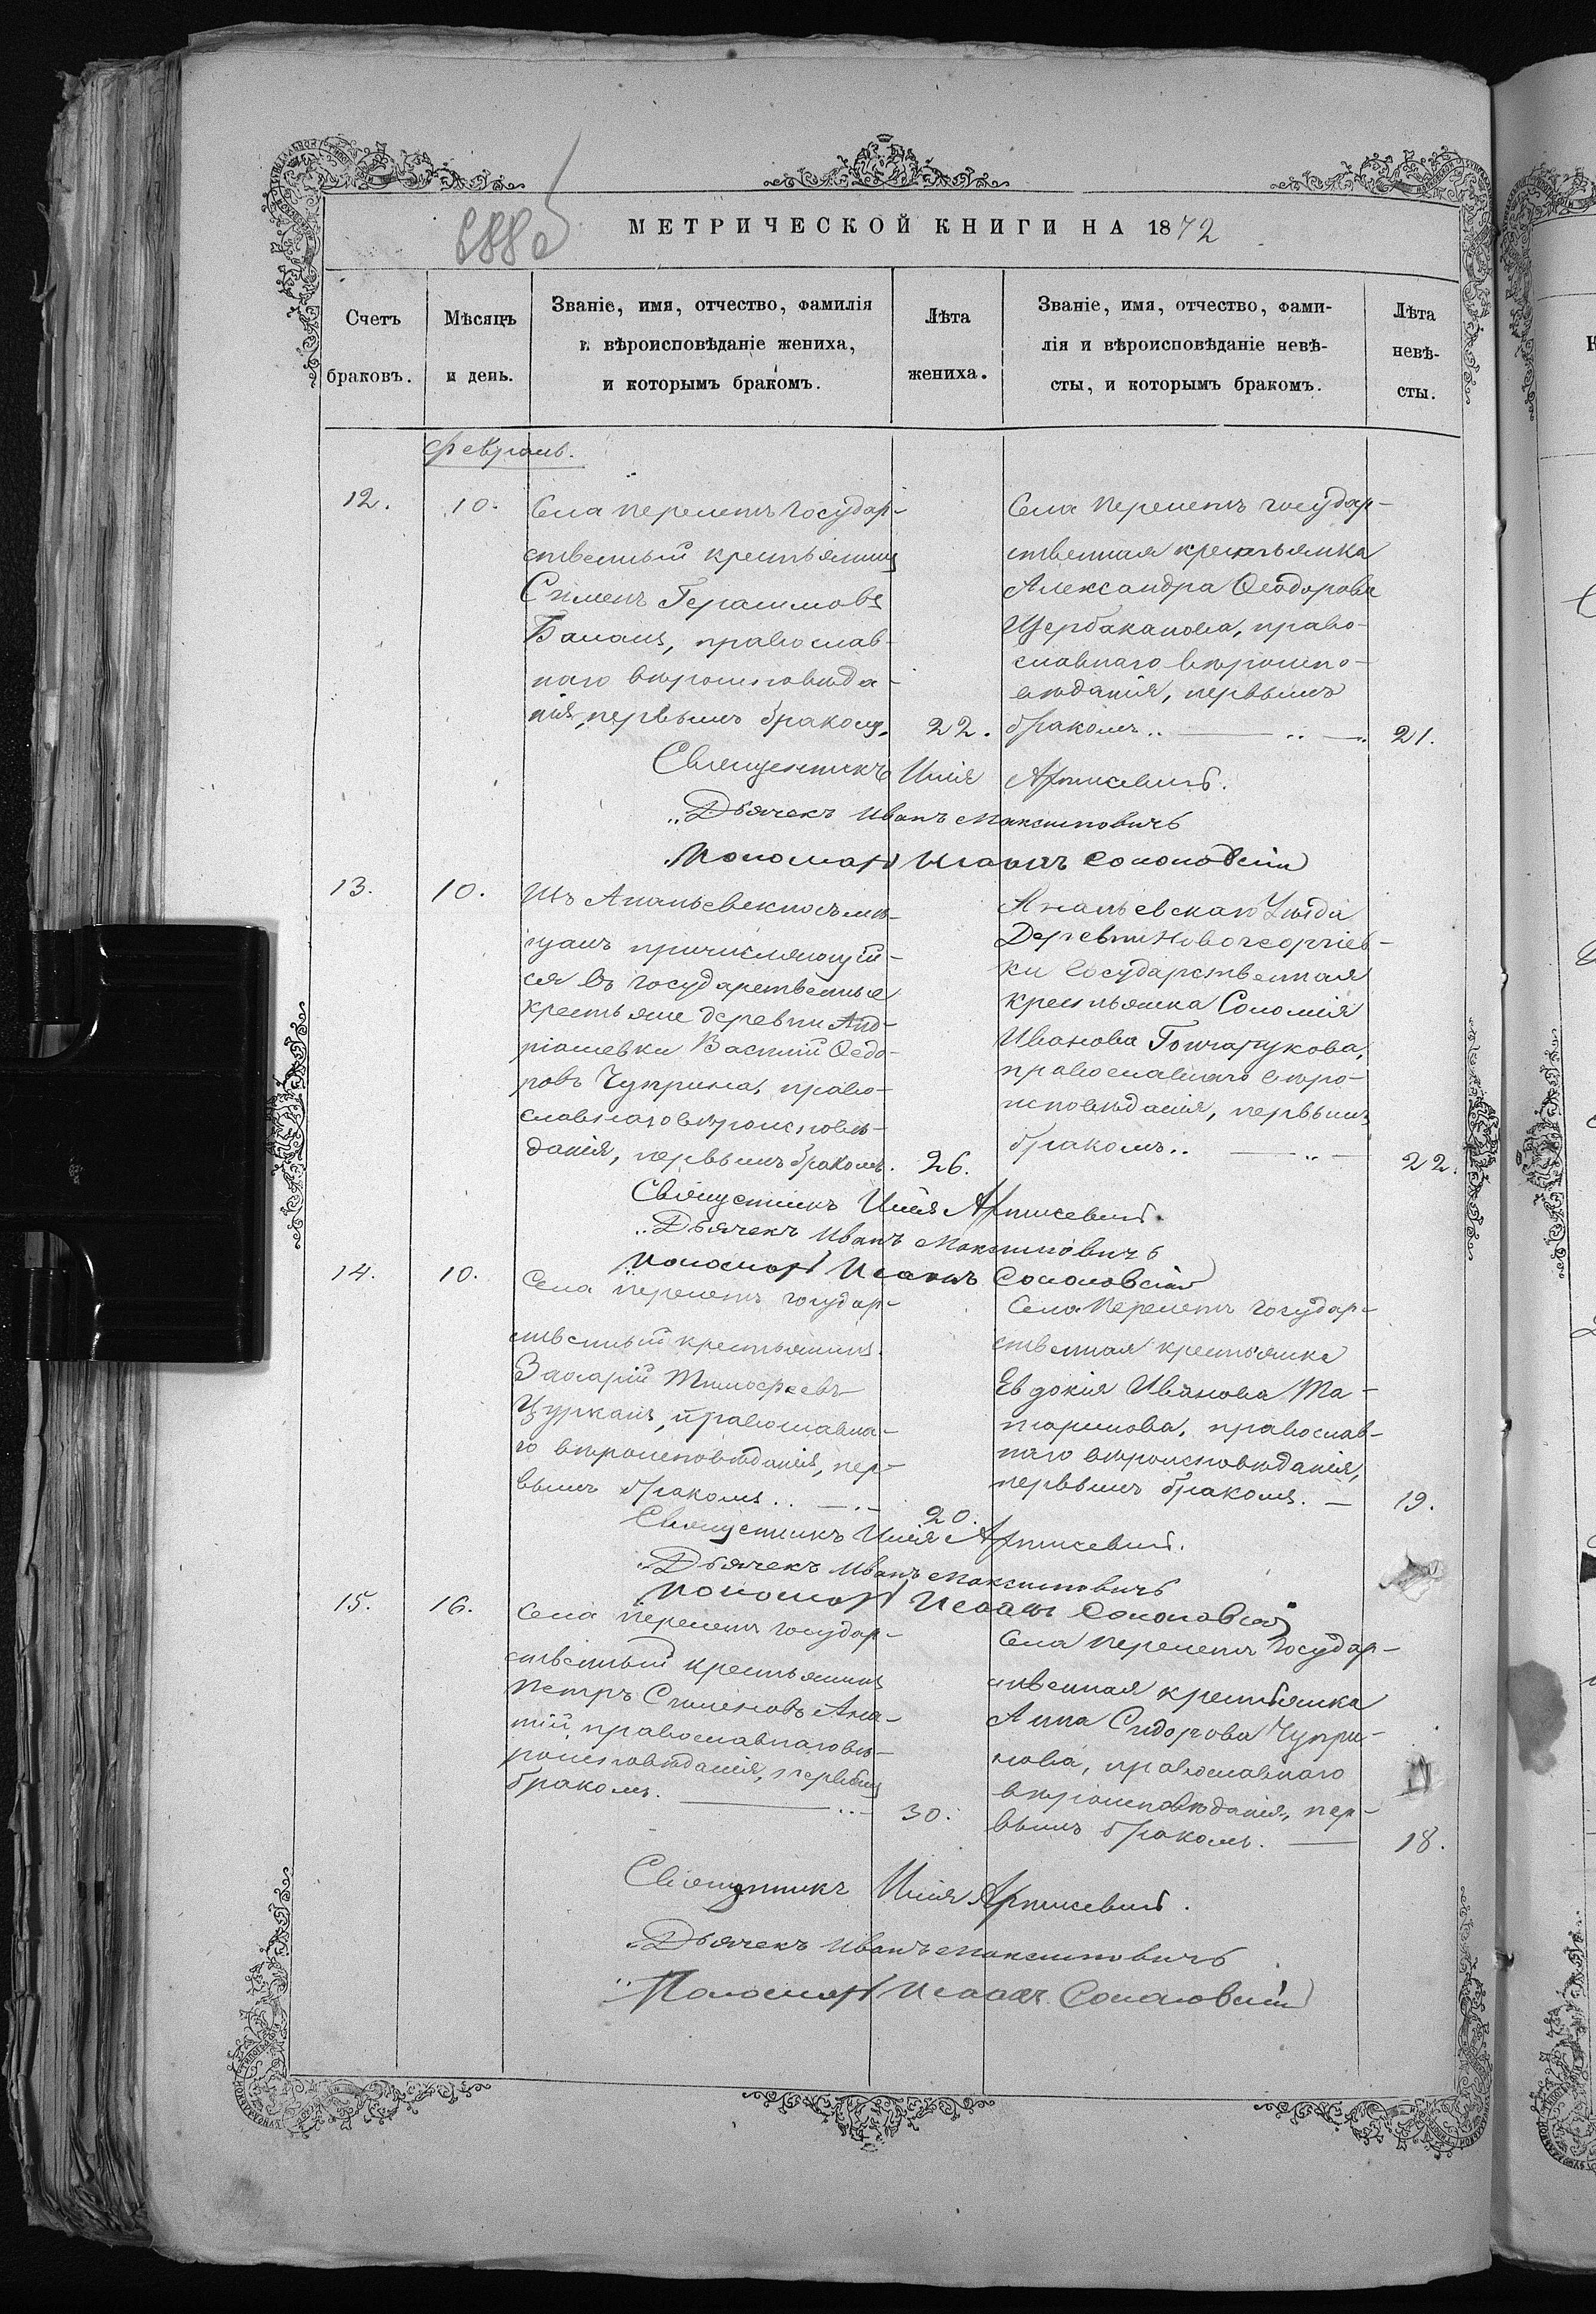 МЕТРИЧЕСКОЙ КНИГИ НА 1872
Счетъ браковъ.
Мѣсяцъ и день.
Званіе, имя, отчество, фамилія
и вѣроисповѣданіе жениха,
и которымъ бракомъ.
Лѣта жениха.
Званіе, имя, отчество, фами-
лія и вѣроисповѣданіе невѣ-
сты, и которымъ бракомъ.
Лѣта невѣ-
сты.
Февраль.
12.
10.
Села Перелетъ государ-
ственный крестьянинъ
Сѵмеонъ Герасимовъ
Баланъ, православ-
наго вѣроисповѣда-
нія, первымъ бракомъ.
22.
Села Перелетъ государ-
ственная крестьянка
Александра Ѳеодорова
Щербаканова, право-
славнаго вѣроиспо-
вѣданія, первымъ
бракомъ..
21.
Священникъ Илія
Дьячекъ Иванъ Максимовичъ
Пономарь Исаакъ Соколовскій
13.
10.
Изъ Ананьевскихъ мѣ-
щанъ причисляющій-
ся въ государственные
крестьяне деревни Анд-
ріашевки Василій Ѳедо-
ровъ Чуприна, право-
славнаго вѣроисповѣ-
данія, первымъ бракомъ.
26.
Ананьевскаго Уѣзда
Деревни Новогеоргіев-
ки государственная
крестьянка Соломія
Иванова Гончарукова,
православнаго вѣро-
исповѣданія, первымъ
бракомъ..
22.
Священникъ Илія
Дьячекъ Иванъ Максимовичъ
Пономарь Исаакъ Соколовскій
14.
10.
Села Перелетъ государ-
ственный крестьянинъ
Захарій Тимофеевъ
Цурканъ, православна-
го вѣроисповѣданія, пер-
вымъ бракомъ..
20.
Села Перелетъ государ-
ственная крестьянка
Евдокія Иванова Та-
православ-
наго вѣроисповѣданія,
первымъ бракомъ.
19.
Священникъ Илія
Дьячекъ Иванъ Максимовичъ
Пономарь Исаакъ Соколовскій
15.
16.
Села Перелетъ государ-
ственный крестьянинъ
Петръ Сѵмеоновъ
православнаго вѣ-
роисповѣданія, первымъ
бракомъ.
30.
Села Перелетъ государ-
ственная крестьянка
Анна Сидорова Чупри-
нова, православнаго
вѣроисповѣданія, пер-
вымъ бракомъ.
18.
Священникъ Илія
Дьячекъ Иванъ Максимовичъ
Пономарь Исаакъ Соколовскій